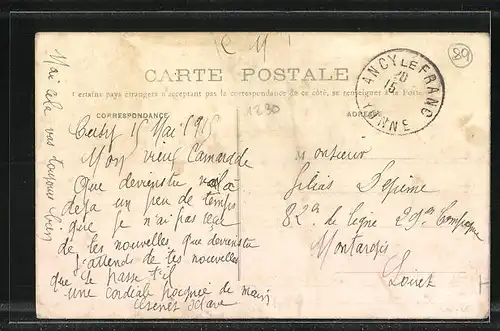 C M
89
ANCY LE FRANC
YONNE
CARTE POSTALE
Certains pays étrangers n'acceptant pas la correspondance de ce côté, se renseigner à la Poste
CORRESPONDANCE
ADRESSE
1230
15 Mai 1915
Mon vieux Camarade
Que deviens tu voila
deja un peu de temps
que je n'ai pas reçu
de tes nouvelles, que deviens tu
j'attends de tes nouvelles
que se passe t'il
une cordiale poignée de main
Octave
Mai cela vas toujours bien
Monsieur
82e de ligne 29me Compagnie
Montargis
Loiret